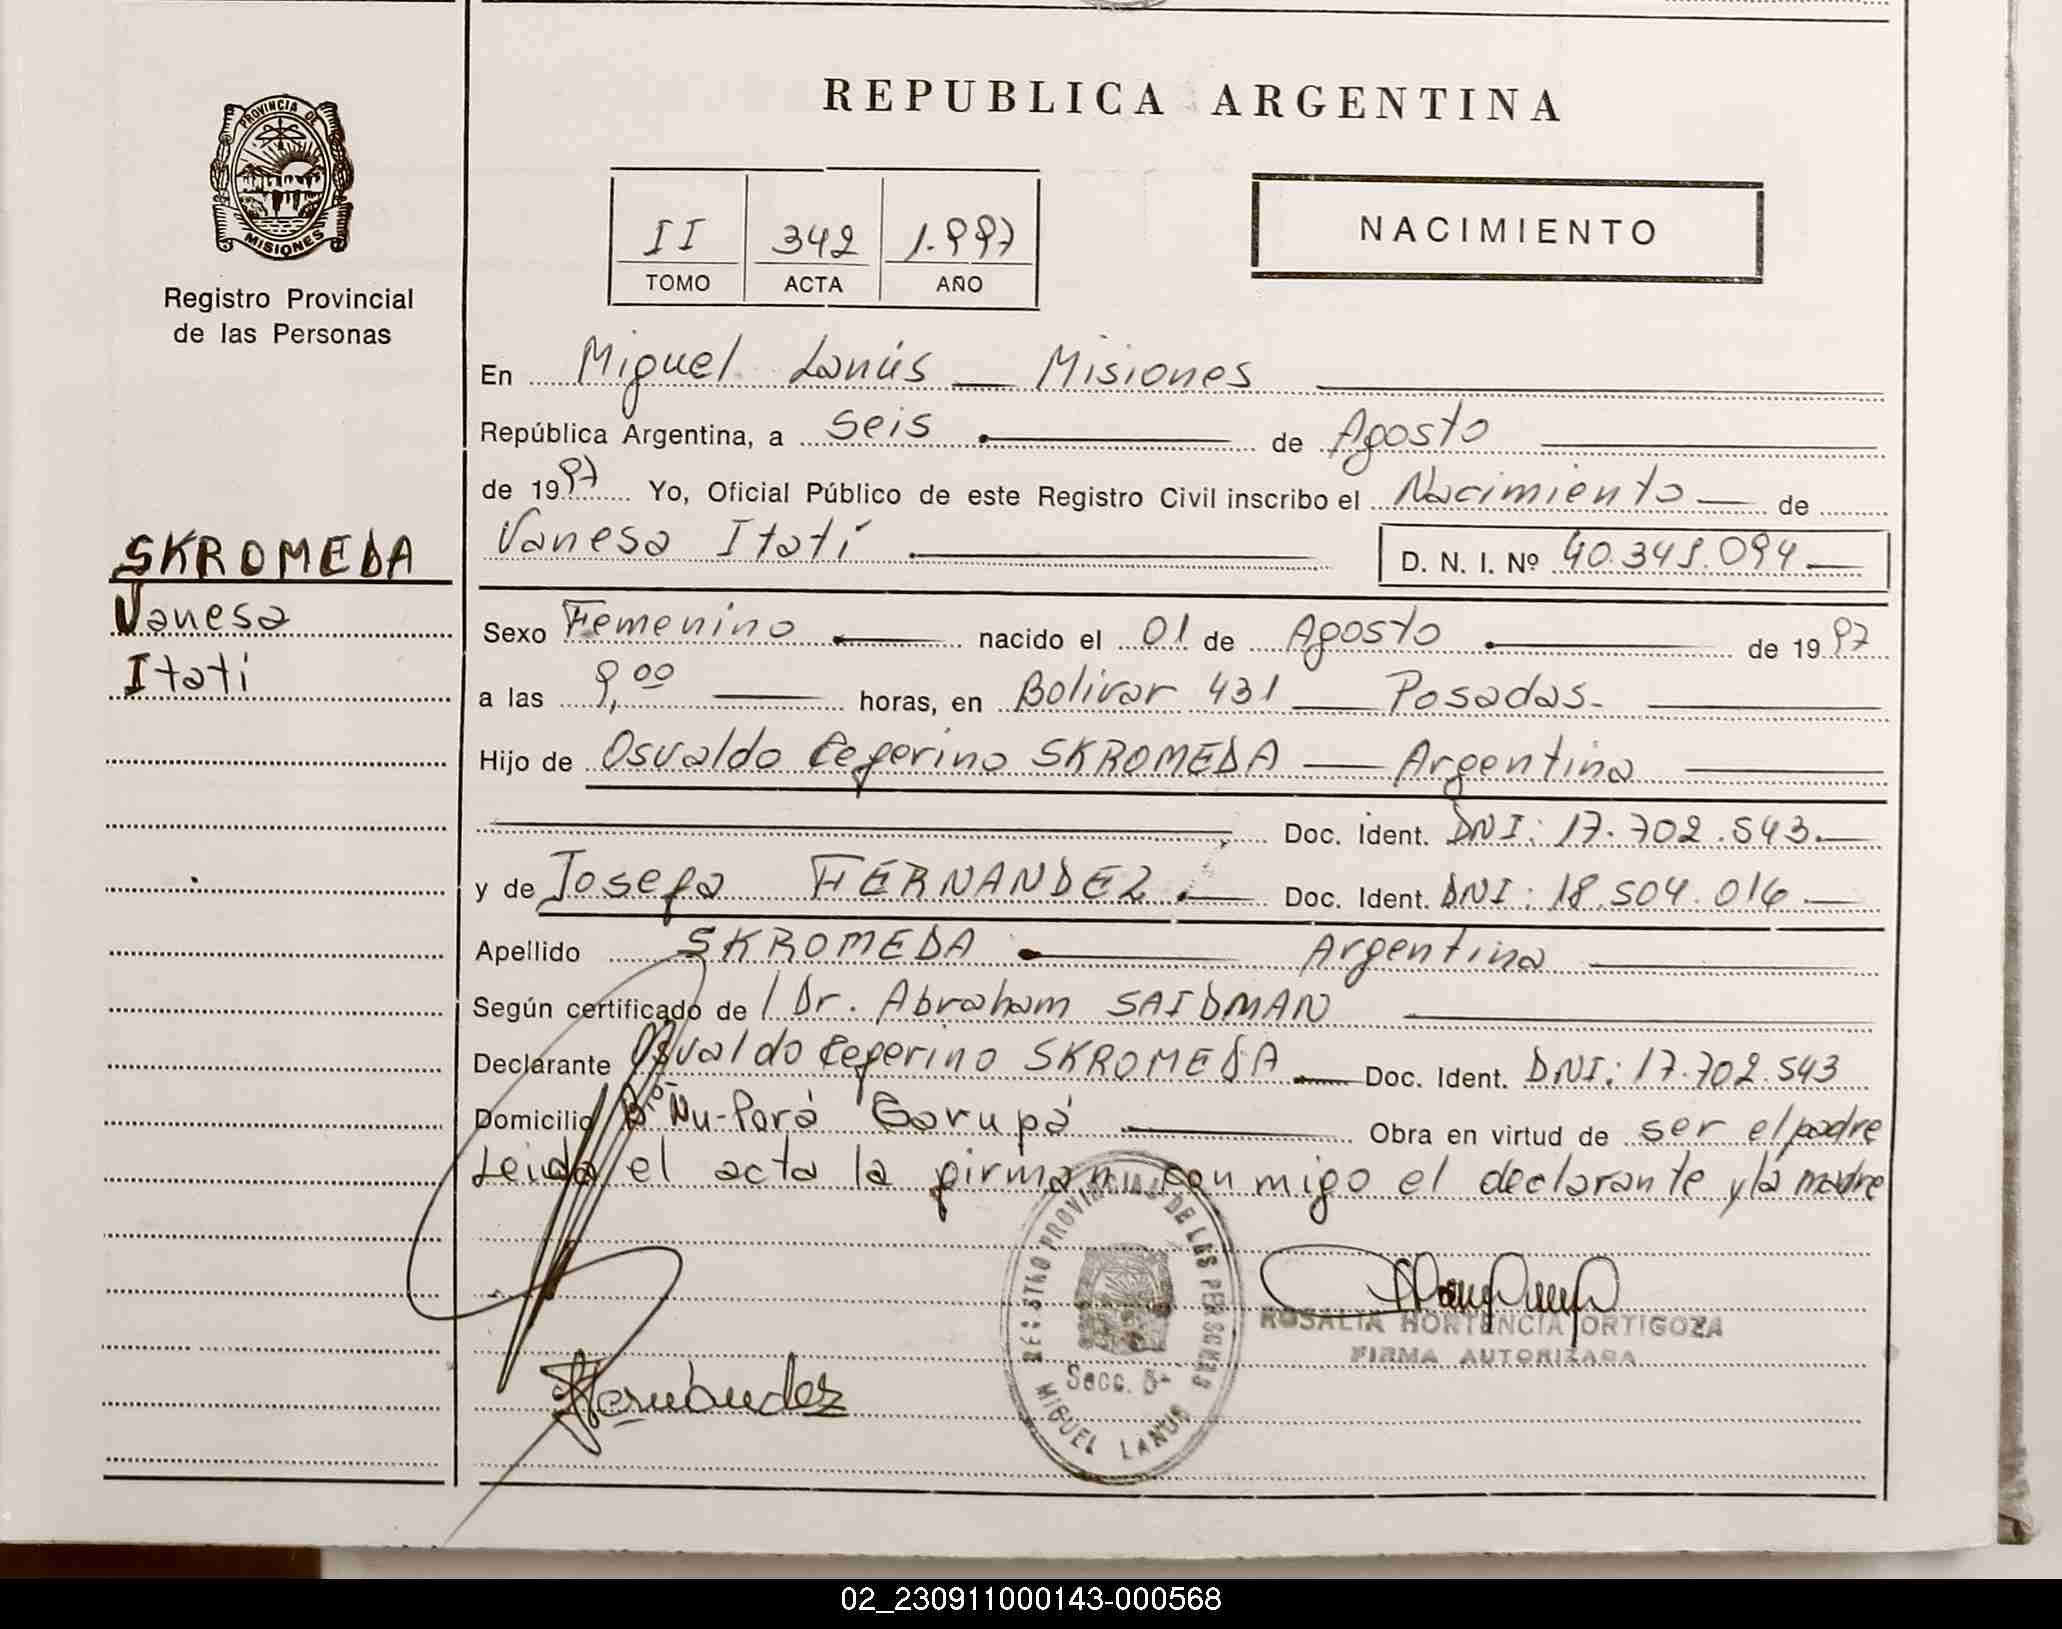 REPUBLICA ARGENTINA
PROVINCIA DE
MISIONES
Registro Provincial
de las Personas
II 342 1.997
TOMO ACTA AÑO
NACIMIENTO
En Miguel Lanús Misiones
República Argentina, a seis de Agosto
de 1997 Yo, Oficial Público de este Registro Civil inscribo el Nacimiento de
Vanesa Itatí D. N. I. Nº 40.348.094
SKROMEDA
Vanesa
Itatí
Sexo Femenino nacido el 01 de Agosto de 1997
a las 9,00 horas, en Bolivar 431 Posadas.
Hijo de Osvaldo Ceferino SKROMEDA Argentina
Doc. Ident. DNI: 17.702.543.
y de Josefa FERNANDEZ. Doc. Ident. DNI: 18.504.016
Apellido SKROMEDA Argentina
Según certificado de Dr. Abraham SAIDMAN
Declarante Osvaldo Ceferino SKROMEDA Doc. Ident. DNI: 17.702.543
Domicilio Bº Ñu-Porá Garupá Obra en virtud de ser el padre
Leida el acta la firman conmigo el declarante y la madre
REGISTRO PROVINCIAL DE LAS PERSONAS
Secc. 5ª
MIGUEL LANUS
ROSALIA HORTENCIA ORTIGOZA
FIRMA AUTORIZADA
Fernandez
02_230911000143-000568